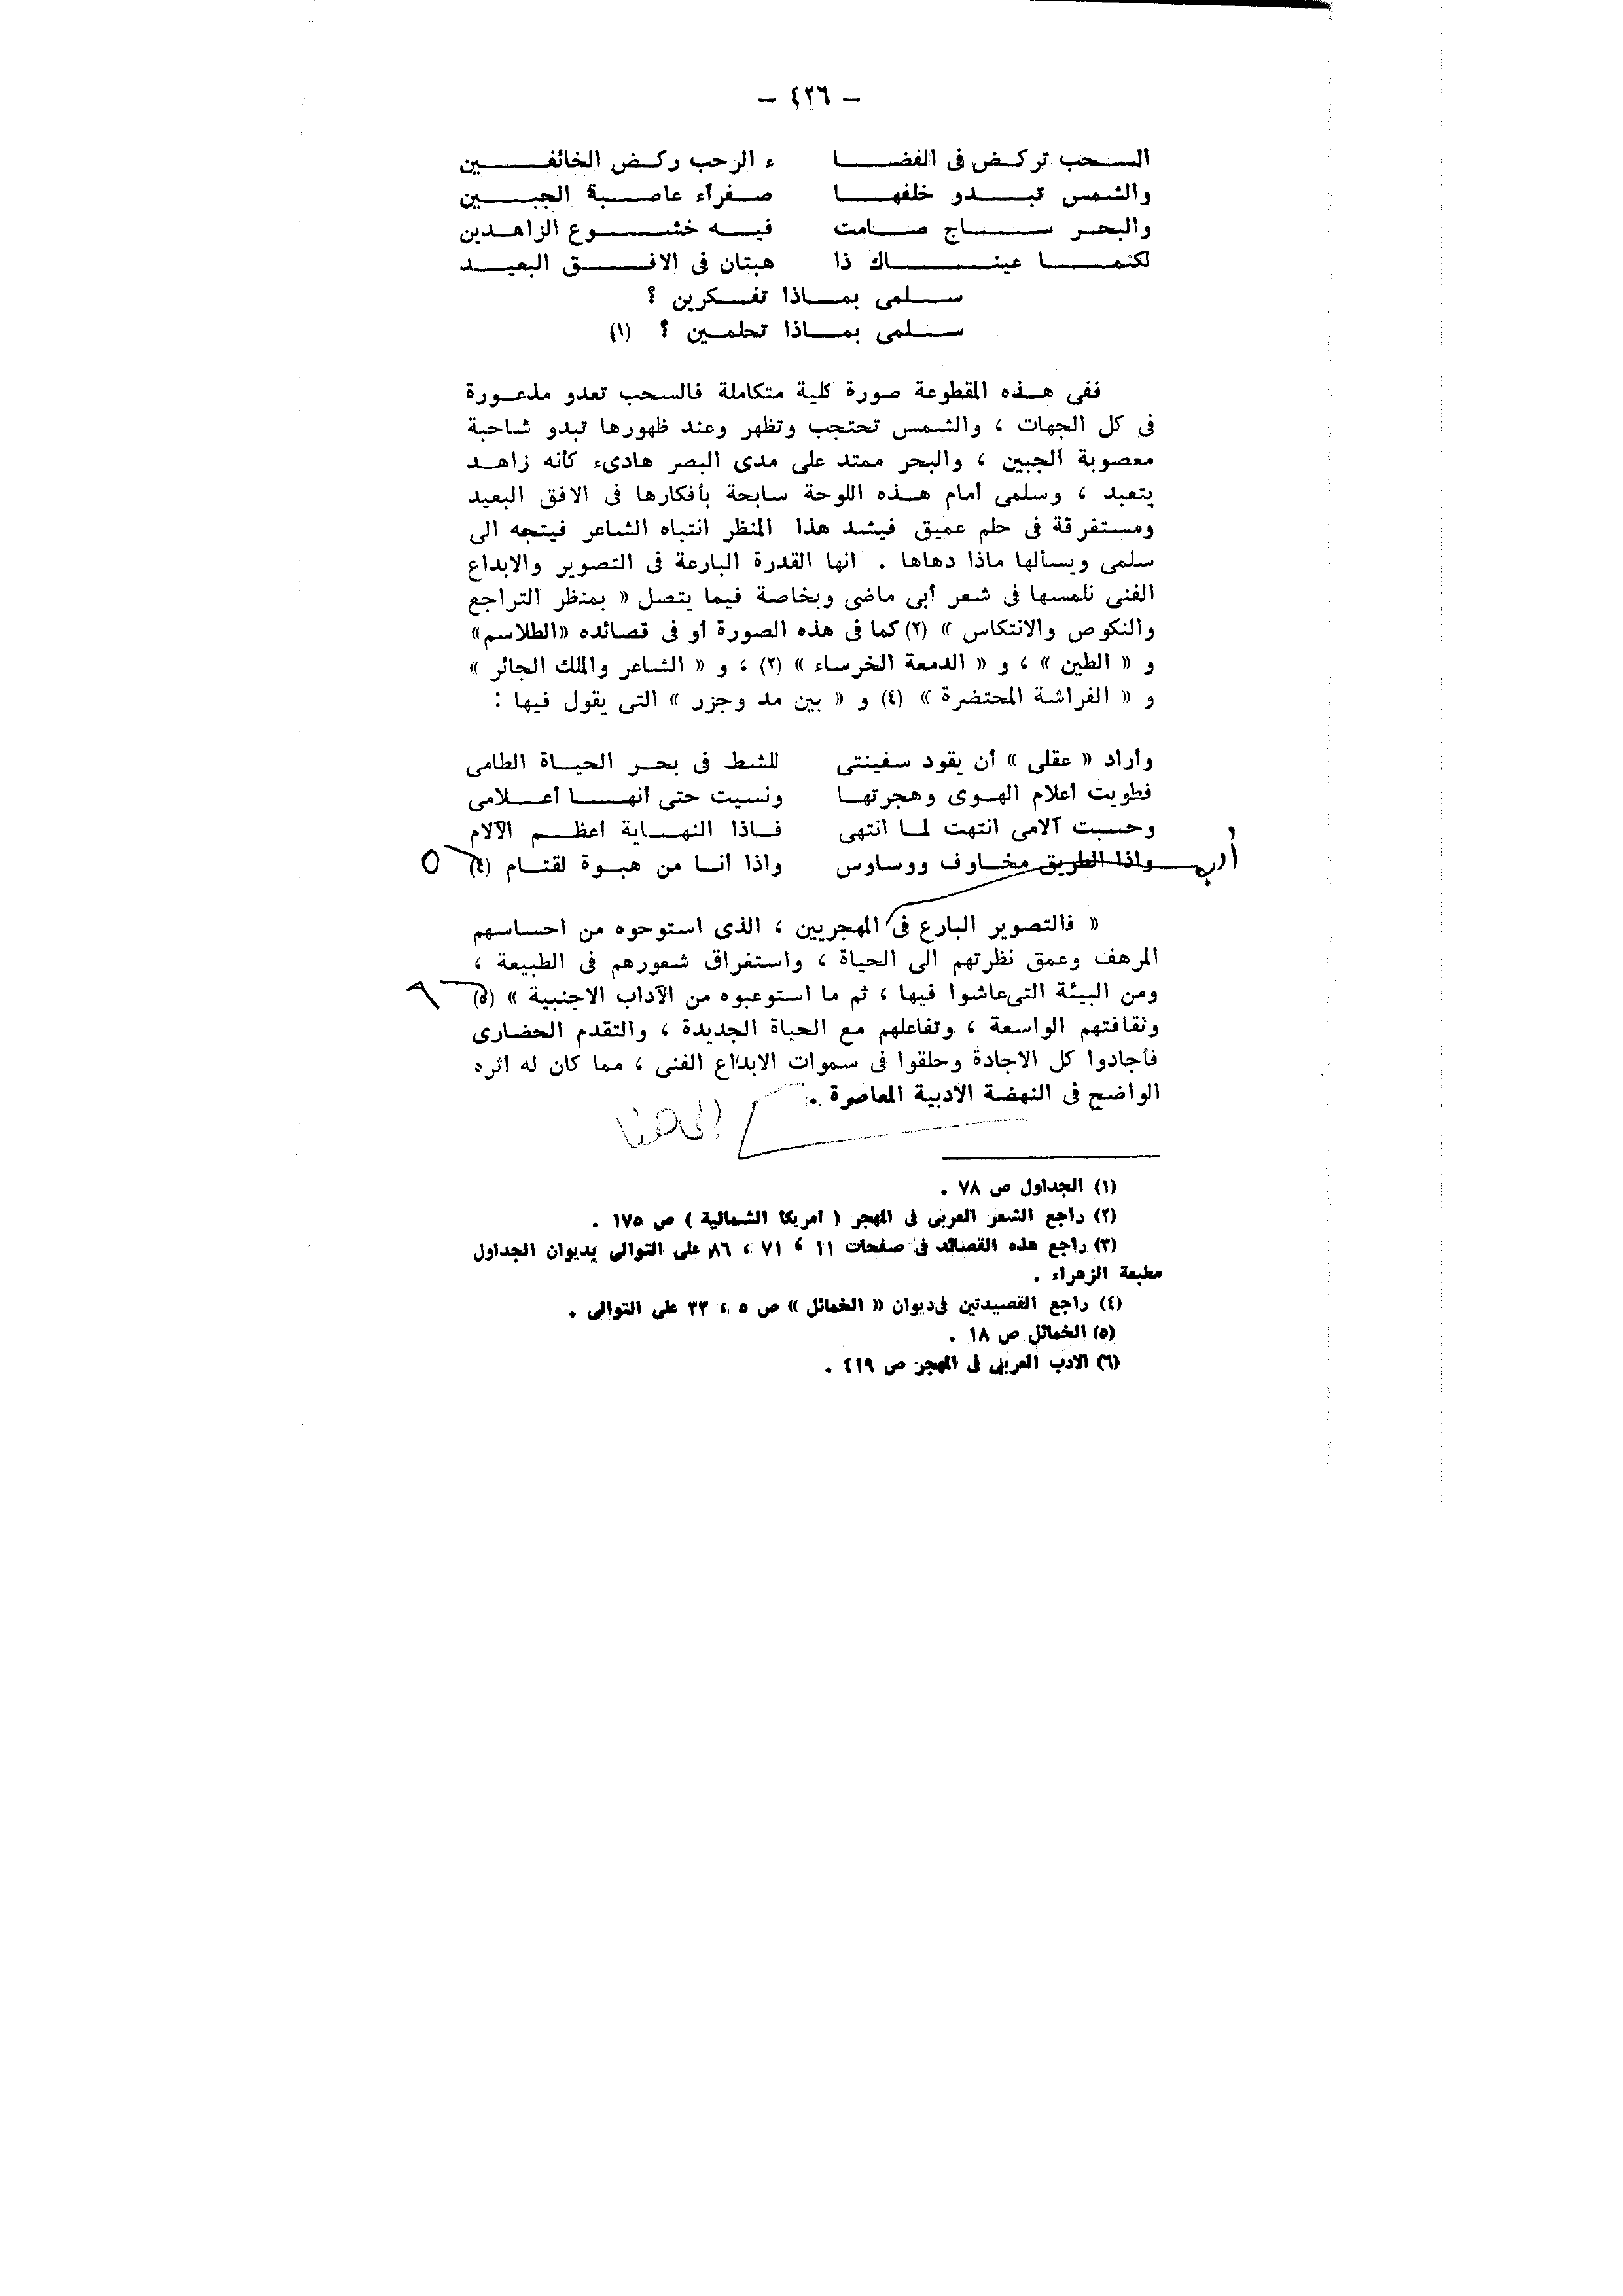 — ٤٢٦ —
السحب تركض فى الفضا ء الرحب ركض الخائفين
والشمس تبدو خلفها صفراء عاصبة الجبين
والبحر ساج صامت فيه خشوع الزاهدين
لكنما عيناك ذا هبتان فى الافق البعيد
سلمى بماذا تفكرين ؟
سلمى بماذا تحلمين ؟ (١)
ففى هذه المقطوعة صورة كلية متكاملة فالسحب تعدو مذعورة
فى كل الجهات ، والشمس تحتجب وتظهر وعند ظهورها تبدو شاحبة
معصوبة الجبين ، والبحر ممتد على مدى البصر هادىء كأنه زاهد
يتعبد ، وسلمى أمام هذه اللوحة سابحة بأفكارها فى الافق البعيد
ومستغرقة فى حلم عميق فيشد هذا المنظر انتباه الشاعر فيتجه الى
سلمى ويسألها ماذا دهاها . انها القدرة البارعة فى التصوير والابداع
الفنى نلمسها فى شعر أبى ماضى وبخاصة فيما يتصل « بمنظر التراجع
والنكوص والانتكاس » (٢) كما فى هذه الصورة أو فى قصائده «الطلاسم»
و « الطين » ، و « الدمعة الخرساء » (٢) ، و « الشاعر والملك الجائر »
و « الفراشة المحتضرة » (٤) و « بين مد وجزر » التى يقول فيها :
وأراد « عقلى » أن يقود سفينتى للشط فى بحر الحياة الطامى
فطويت أعلام الهوى وهجرتها ونسيت حتى أنها أعلامى
وحسبت آلامى انتهت لما انتهى فاذا النهاية أعظم الآلام
واذا الطريق مخاوف ووساوس واذا أنا من هبوة لقتام (٤) ٥
« فالتصوير البارع فى المهجريين ، الذى استوحوه من احساسهم
المرهف وعمق نظرتهم الى الحياة ، واستغراق شعورهم فى الطبيعة ،
ومن البيئة التى عاشوا فيها ، ثم ما استوعبوه من الآداب الاجنبية » (٥)
وثقافتهم الواسعة ، وتفاعلهم مع الحياة الجديدة ، والتقدم الحضارى
فأجادوا كل الاجادة وحلقوا فى سموات الابداع الفنى ، مما كان له أثره
الواضح فى النهضة الادبية المعاصرة .
إلى هنا
(١) الجداول ص ٧٨ .
(٢) راجع الشعر العربى فى المهجر ( امريكا الشمالية ) ص ١٧٥ .
(٣) راجع هذه القصائد فى صفحات ١١ ، ٧١ ، ٨٦ على التوالى بديوان الجداول
مطبعة الزهراء .
(٤) راجع القصيدتين فى ديوان « الخمائل » ص ٥ ، ٣٣ على التوالى .
(٥) الخمائل ص ١٨ .
(٦) الادب العربى فى المهجر ص ٤١٩ .